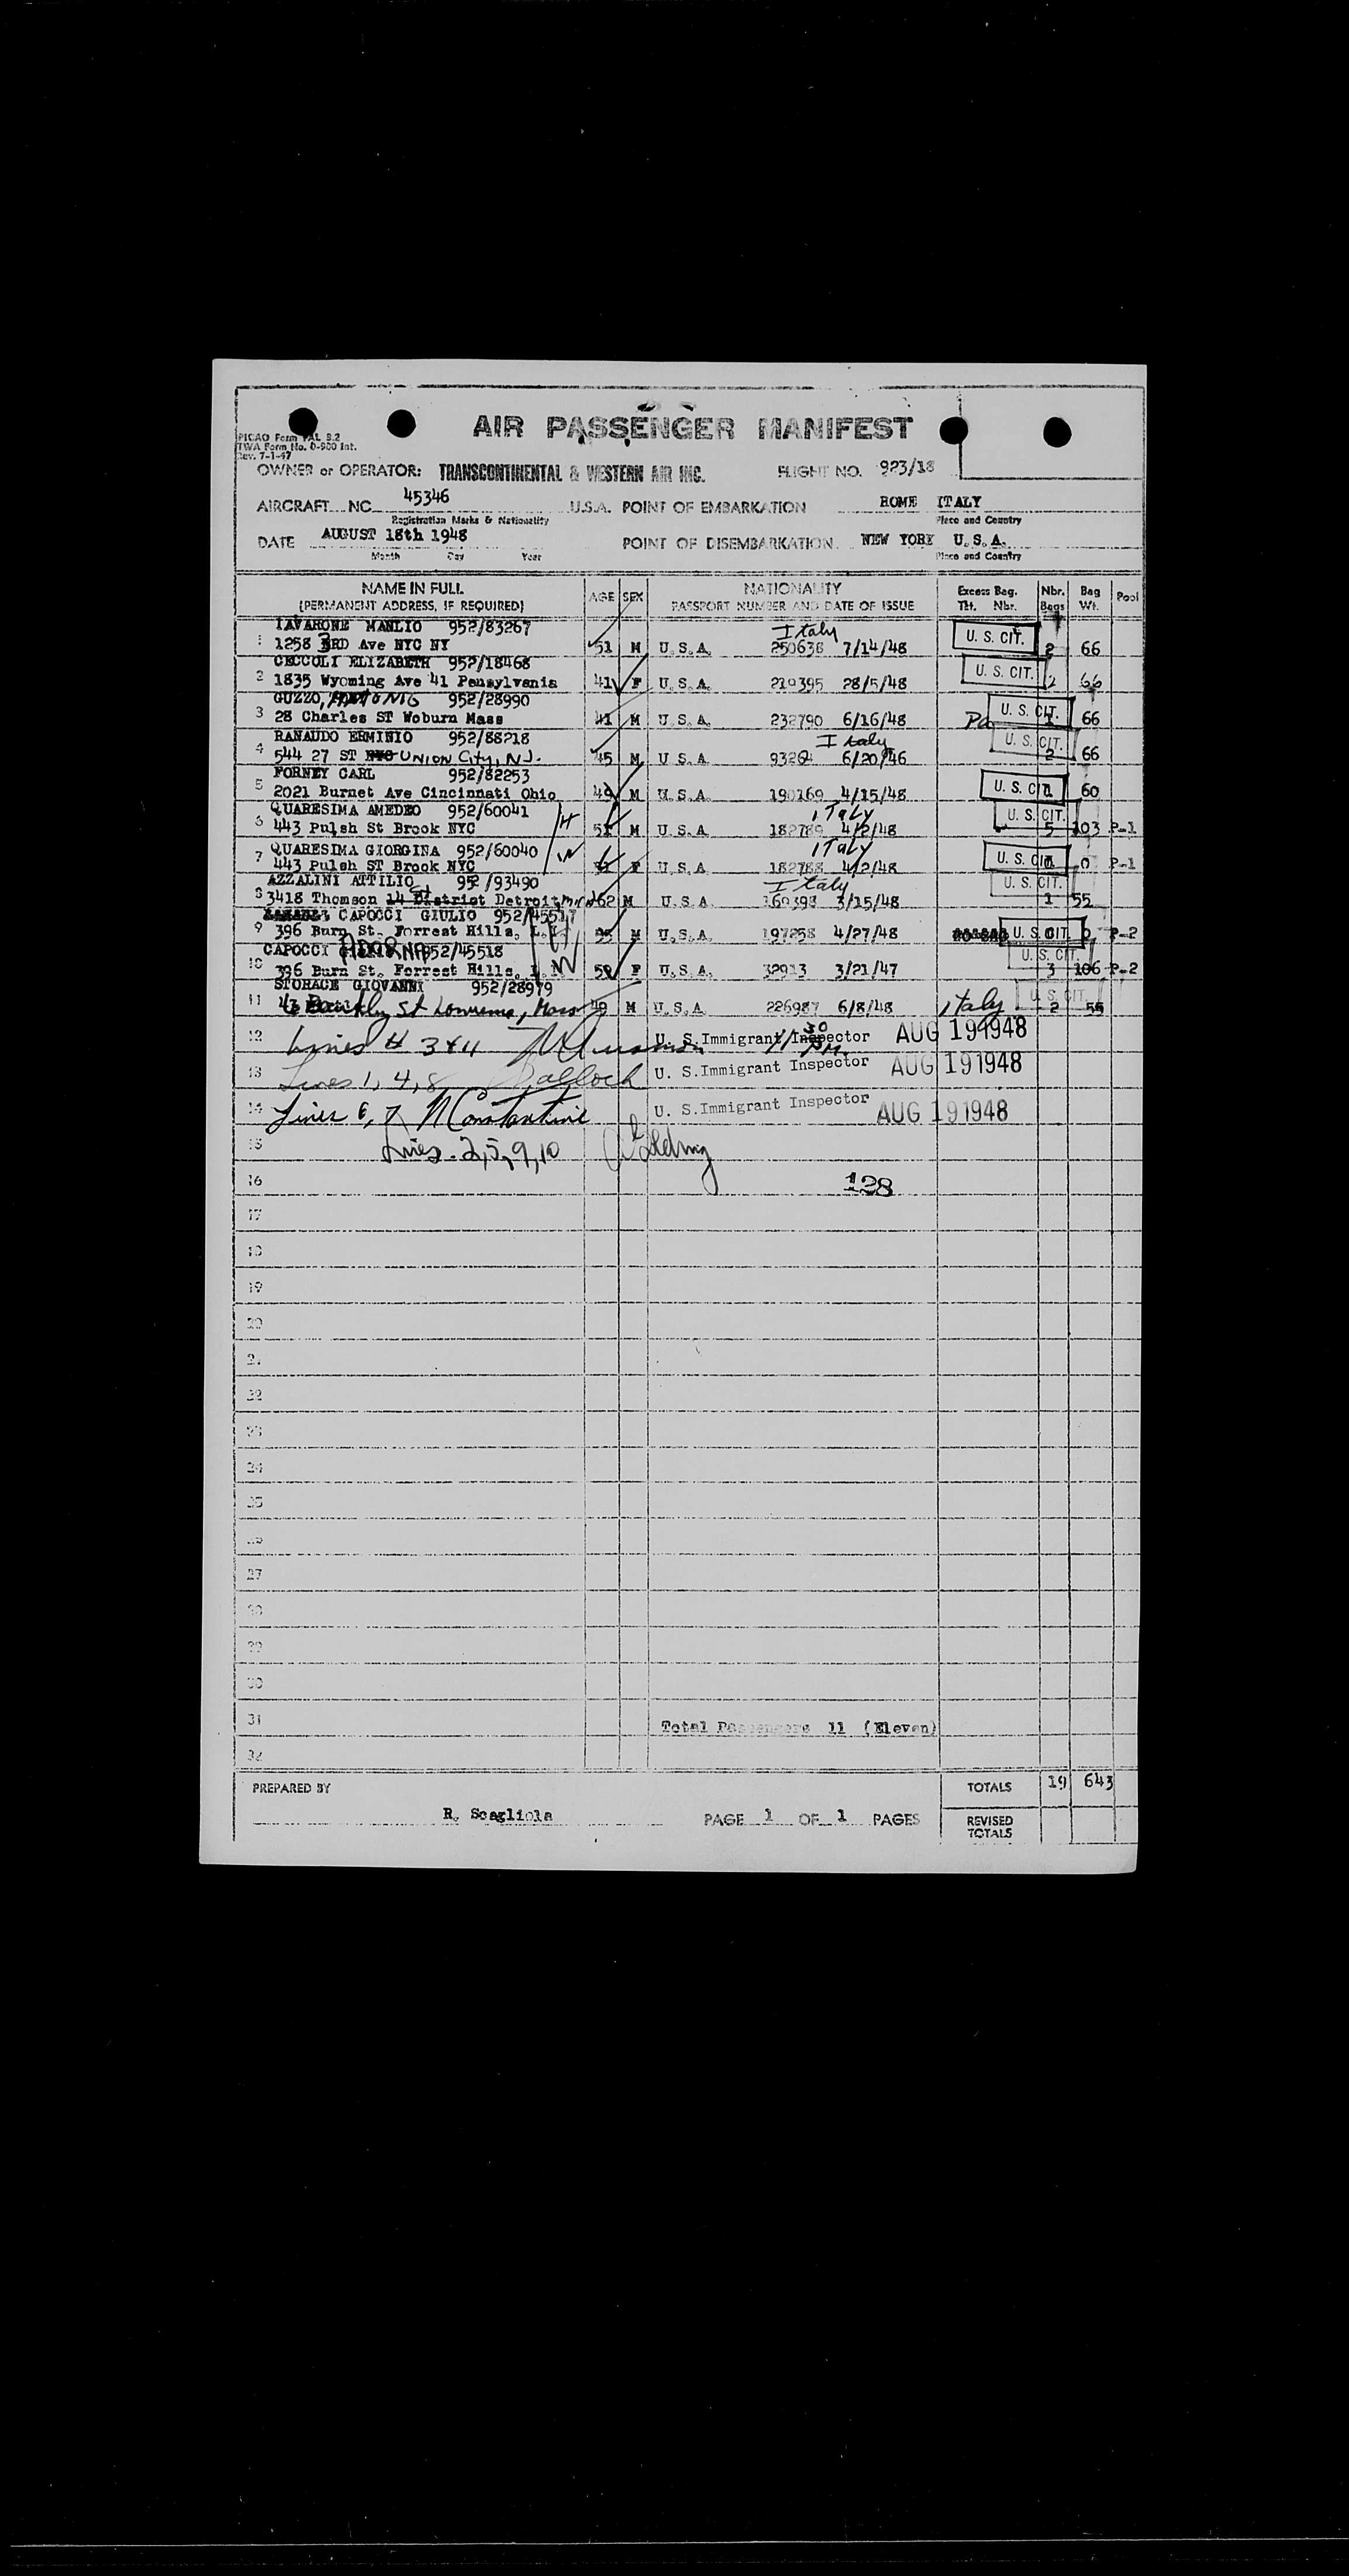 AIR PASSENGER MANIFEST
PICAO Form FAL 9.2
TWA Form No. 0-900 Int.
Rev. 7-1-47
OWNER or OPERATOR: TRANSCONTINENTAL & WESTERN AIR INC. FLIGHT NO. 923/18
AIRCRAFT NC 45346 U.S.A. POINT OF EMBARKATION ROME ITALY
Registration Marks & Nationality Place and Country
DATE AUGUST 18th 1948 POINT OF DISEMBARKATION NEW YORK U.S.A.
Month Day Year Place and Country
NAME IN FULL (PERMANENT ADDRESS, IF REQUIRED) AGE SEX NATIONALITY PASSPORT NUMBER AND DATE OF ISSUE Excess Bag. Tkt. Nbr. Nbr. Bags Bag Wt. Pool
IAVARONE MANLIO 952/83267 Italy
1 1258 3RD Ave NYC NY 51 M U.S.A. 250638 7/14/48 U. S. CIT. 2 66
CECCOLI ELIZABETH 952/18468
2 1835 Wyoming Ave 41 Pensylvania 41 F U.S.A. 219395 28/5/48 U. S. CIT. 2 66
GUZZO, ANTONIO 952/28990
3 28 Charles ST Woburn Mass 41 M U.S.A. 232790 6/16/48 Pa U. S. CIT. 66
RANAUDO ERMINIO 952/88218 Italy
4 544 27 ST NYC UNION City, N.J. 45 M U.S.A. 6/20/46 U. S. CIT. 2 66
FORNEY CARL 952/82253
5 2021 Burnet Ave Cincinnati Ohio 49 M U.S.A. 190169 4/15/48 U. S. CIT. 60
QUARESIMA AMEDEO 952/60041 H ITaly
6 443 Pulsh St Brook NYC 51 M U.S.A. 182789 4/2/48 U. S. CIT. 5 103 P-1
QUARESIMA GIORGINA 952/60040 W ITaly
7 443 Pulsh ST Brook NYC F U.S.A. 182788 4/2/48 U. S. CIT. 0 P-1
AZZALINI ATTILIO 952/93490 Italy
8 3418 Thomson 14 District St Detroit Mich 62 M U.S.A. 160398 3/15/48 U. S. CIT. 1 55
CAPOCCI GIULIO 952/45517
9 396 Burn St. Forrest Hills, L.I. H M U.S.A. 197258 4/27/48 U. S. CIT. 0 P-2
CAPOCCI ADORNA 952/45518
10 396 Burn St. Forrest Hills, W F U.S.A. 32913 3/21/47 U. S. CIT. 3 106 P-2
STORACE GIOVANNI 952/28979
11 St Mass 49 M U.S.A. 226987 6/8/48 italy U. S. CIT. 2 55
12 Lines # 3 & 11 U. S. Immigrant Inspector 11 30 PM. AUG 19 1948
13 Lines 1, 4, 8 U. S. Immigrant Inspector AUG 19 1948
14 Lines 6, 7 N Constantine U. S. Immigrant Inspector AUG 19 1948
15 Lines 2, 5, 9, 10
16 128
17
18
19
20
21
22
23
24
25
26
27
28
29
30
31 Total Passengers 11 (Eleven)
32
PREPARED BY R. Scagliola PAGE 1 OF 1 PAGES TOTALS 19 643
REVISED TOTALS